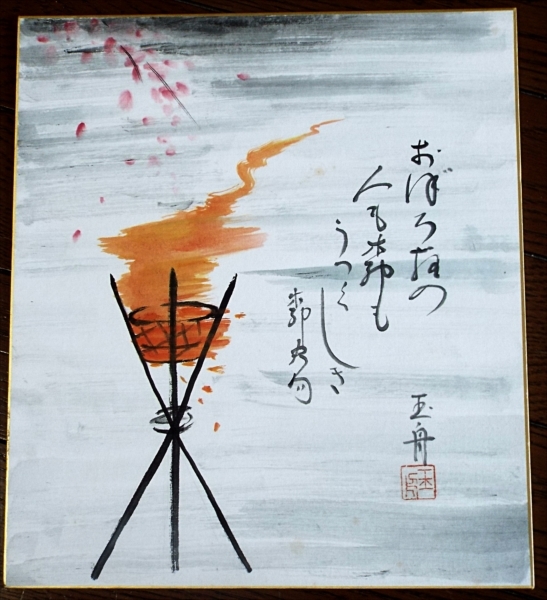 おぼろ夜の
人も都も
うつくしき
句
玉舟